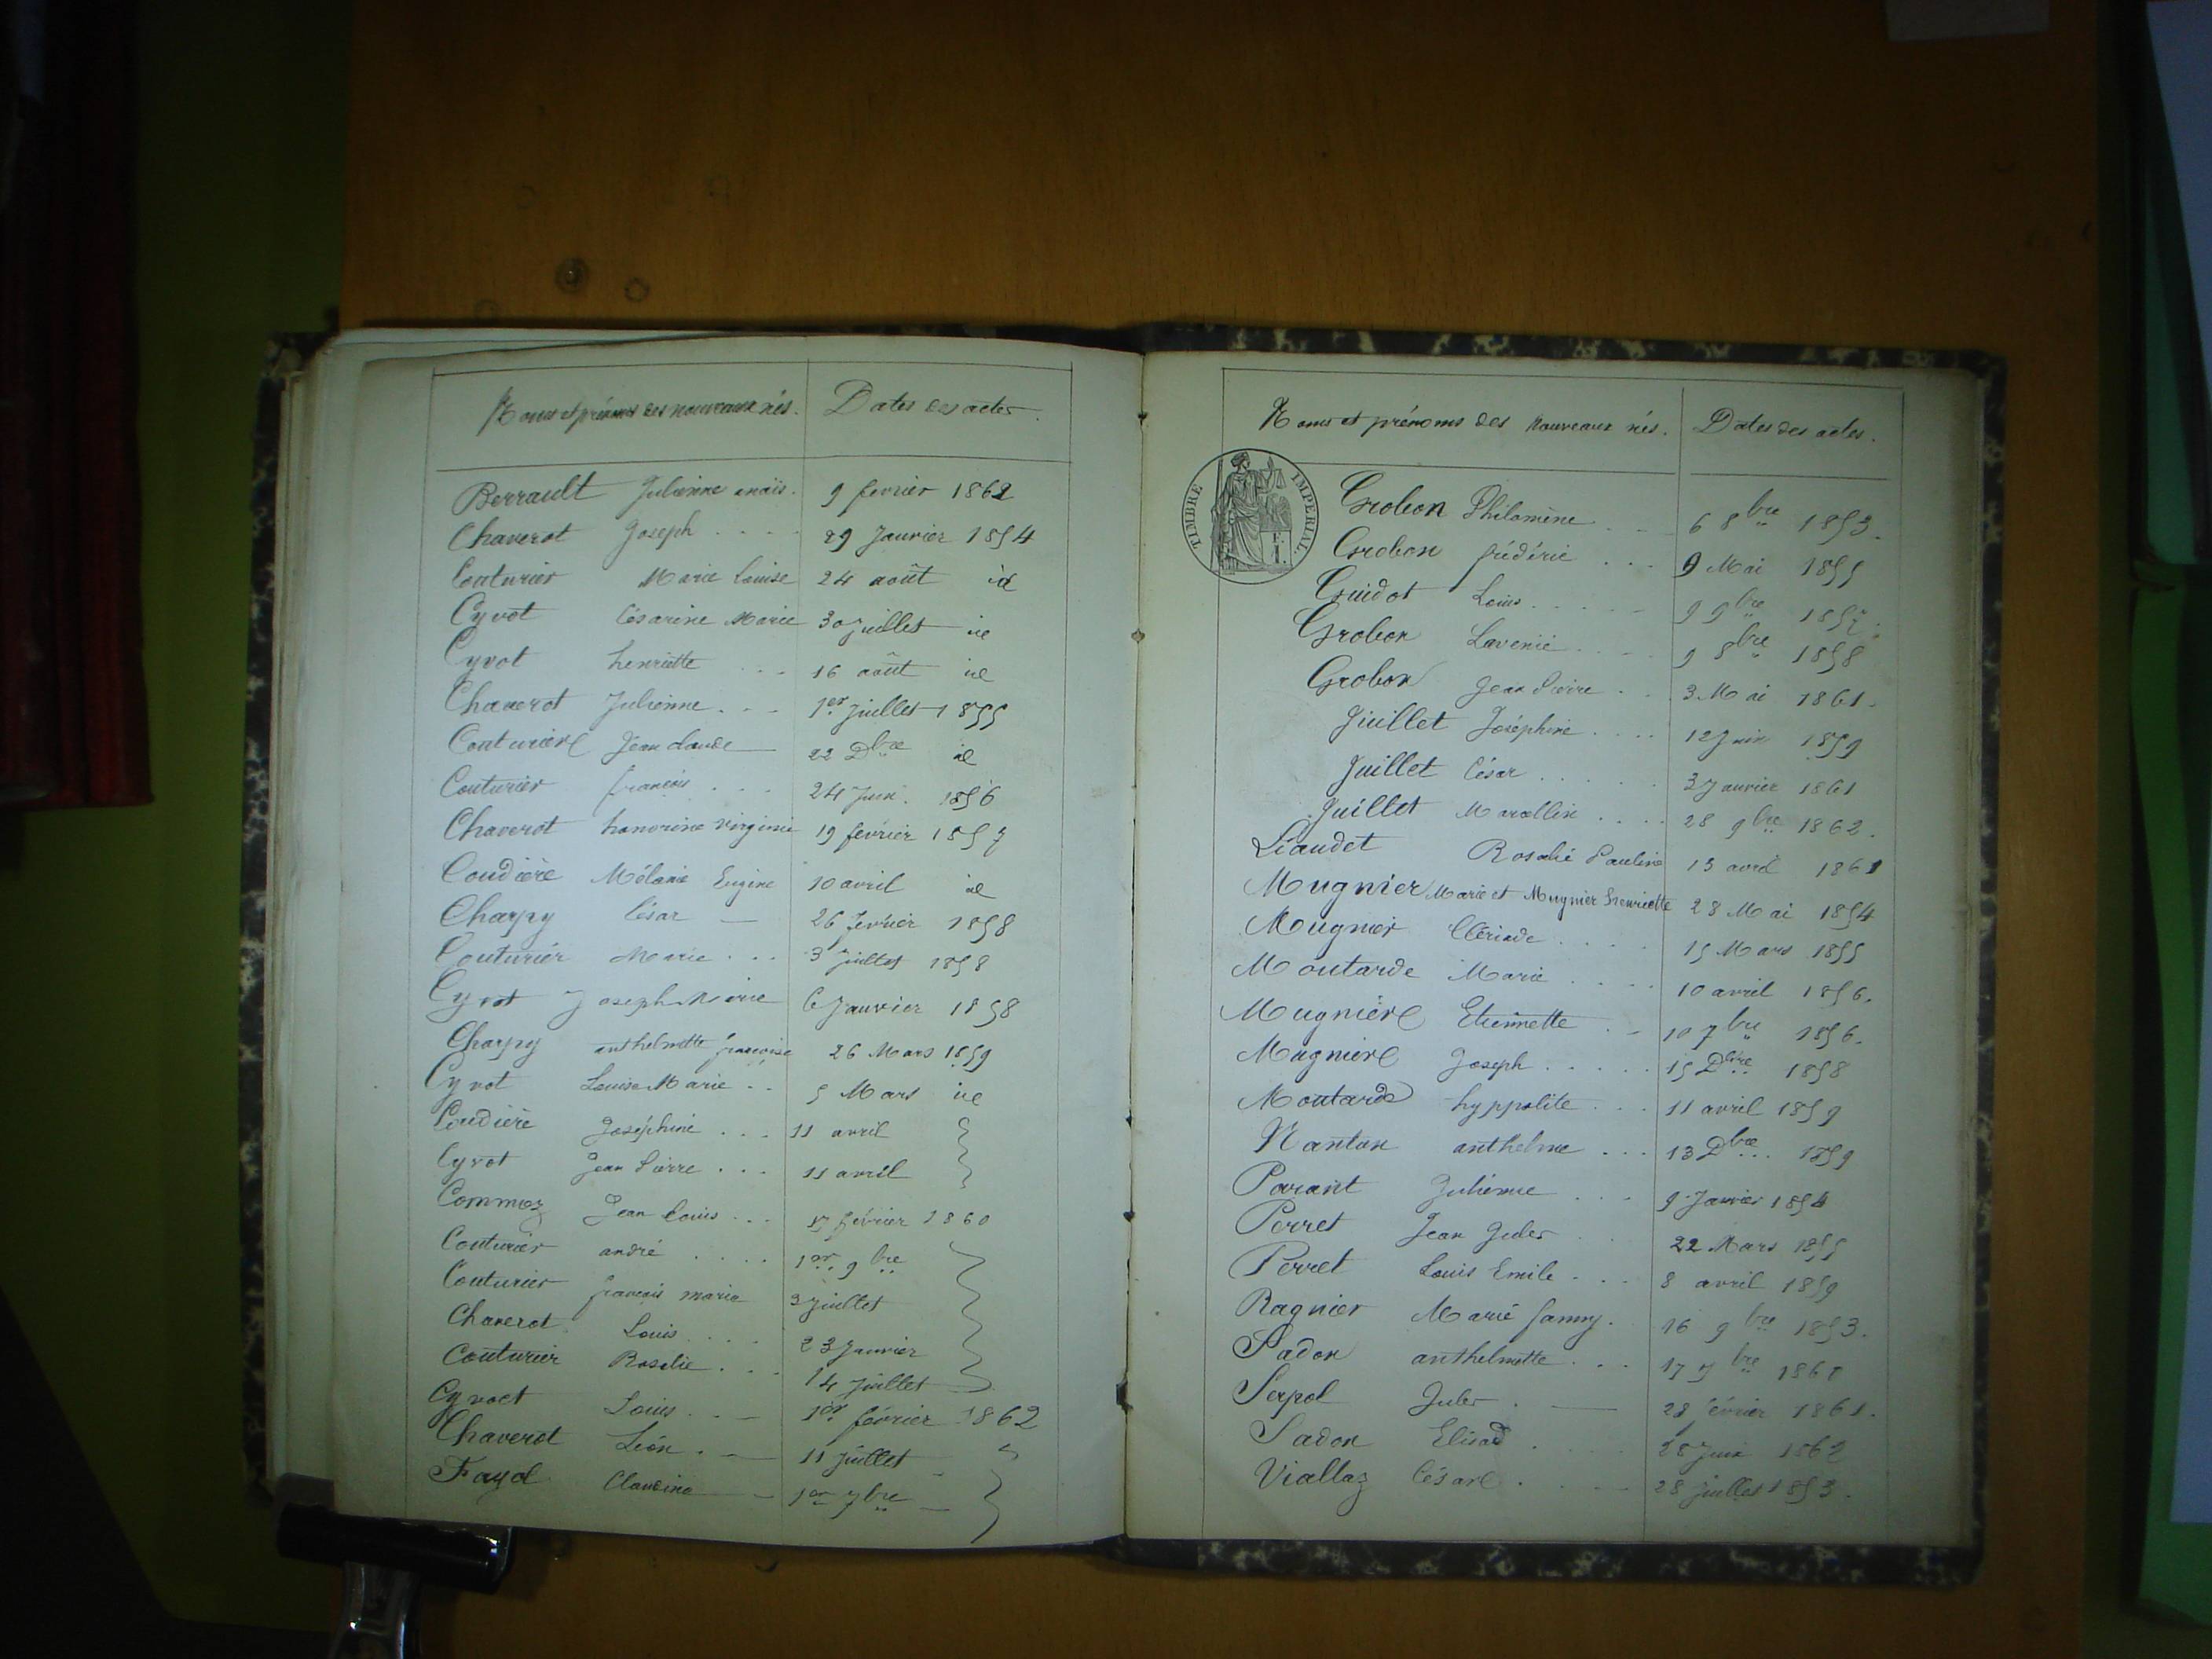 Noms et prénoms des nouveaux nés. Dates des actes.
Berrault Julienne anaïs. 9 fevrier 1862
Chaverot Joseph .... 29 Janvier 1854
Couturier Marie Louise 24 août id
Cyvot Césarine Marie 30 juillet id
Cyvot henriette ... 16 août id
Chaverot Julienne ... 1er juillet 1855
Couturier Jean claude 22 Dbre id
Couturier françois ... 24 Juin. 1856
Chaverot honorine virginie 19 fevrier 1857
Coudière Mélanie Eugine 10 avril id
Charpy César — 26 fevrier 1858
Couturier Marie ... 3 Juillet 1858
Cyvot Joseph Marie 6 Janvier 1858
Charpy anthelmette françoise 26 Mars 1859
Cyvot Louise Marie .. 5 Mars id
Coudière Joséphine ... 11 avril
Cyvot Jean Pierre ... 11 avril
Commoz Jean Louis ... 17 fevrier 1860
Couturier andré .... 1er 9bre
Couturier francois marie 3 juillet
Chaverot Louis .... 23 Janvier
Couturier Rosalie ... 14 juillet
Cyvoct Louis .. — 1er février 1862
Chaverot Léon . — 11 juillet
Fayol Claudine — 1er 7bre —
Noms et prénoms des Nouveaux nés. Dates des actes.
TIMBRE IMPÉRIAL
Grobon Philomène .. — 6 8bre 1853.
Grobon frédéric ... 9 Mai 1855
Guidot Louis ..... 9 9bre 1857.
Grobon Lavenie .... 9 8bre 1858
Grobon Jean Pierre .. 3 Mai 1861.
Juillet Joséphine .... 12 Juin 1859
Juillet César ..... 3 Janvier 1861
Juillet Marcellin .... 28 9bre 1862.
Liaudet Rosalie Pauline 13 avril 1861
Mugnier Marie et Mugnier henriette 28 Mai 1854
Mugnier Clériade .... 15 Mars 1855
Moutarde Marie .... 10 avril 1856.
Mugnier Etiennette .. 10 7bre 1856.
Mugnier Joseph ..... 15 Dbre 1858
Moutarde hyppolite ... 11 avril 1859
Nanton anthelme ... 13 Dbre .. 1859
Parant Julienne ... 9 Janvier 1854
Perret Jean Jules .. 22 Mars 1855
Perret Louis Emile ... 8 avril 1859
Ragnier Marie fanny. 16 9bre 1853.
Sadon anthelmette ... 17 7bre 1860
Serpol Jules . — 28 février 1861.
Sadon Elisa .... 28 Juin 1862
Viallaz César ..... 28 juillet 1853.